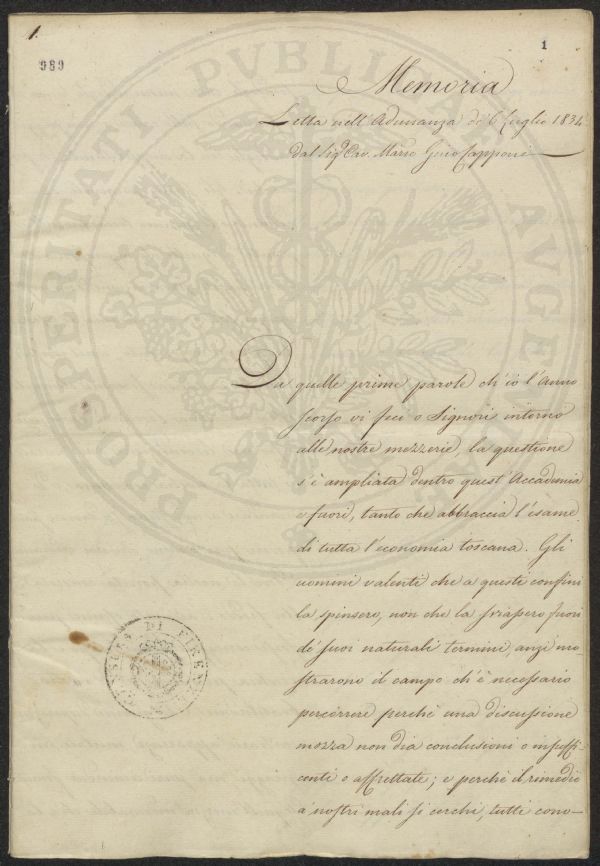 1.
989
1
Memoria
Letta nell'Adunanza de 6 Luglio 1834
dal Sigr Cav. Marse Gino Capponi
Da quelle prime parole ch'io l'Anno
scorso vi feci o Signori intorno
alle nostre mezzerie, la questione
s'è ampliata dentro quest'Accademia
e fuori, tanto che abbraccia l'esame
di tutta l'economia toscana. Gli
uomini valenti che a questi confini
la spinsero, non che la fuori
de' suoi naturali termini, anzi mo-
strarono il campo ch'è necessario
percorrere perchè una discussione
mozza non dia conclusioni o insuffi-
cienti o affrettate; e perchè il rimedio
a' nostri mali si cerchi, tutti cono-
CENSURA DI FIRENZE
PROSPERITATI PVBLICAE AVGENDAE